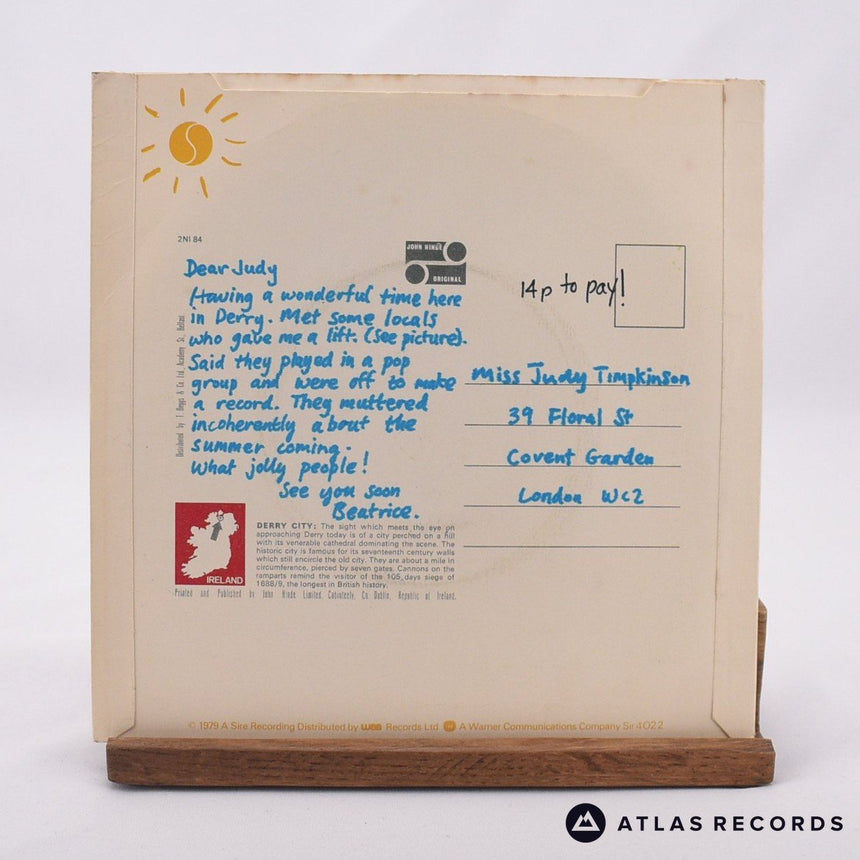 2NI 84
JOHN HINDE
ORIGINAL
Dear Judy
Having a wonderful time here
in Derry. Met some locals
who gave me a lift. (See picture).
Said they played in a pop
group and were off to make
a record. They muttered
incoherently about the
summer coming.
What jolly people!
See you soon
Beatrice.
14p to pay!
Miss Judy Timpkinson
39 Floral St
Covent Garden
London WC2
Distributed by T. & Co. Ltd., Academy St., Belfast
IRELAND
DERRY CITY: The sight which meets the eye on
approaching Derry today is of a city perched on a hill
with its venerable cathedral dominating the scene. The
historic city is famous for its seventeenth century walls
which still encircle the old city. They are about a mile in
circumference, pierced by seven gates. Cannons on the
ramparts remind the visitor of the 105 days siege of
1688/9, the longest in British history.
Printed and Published by John Hinde Limited, Cabinteely, Co. Dublin, Republic of Ireland.
© 1979 A Sire Recording Distributed by wea Records Ltd A Warner Communications Company Sir 4022
ATLAS RECORDS